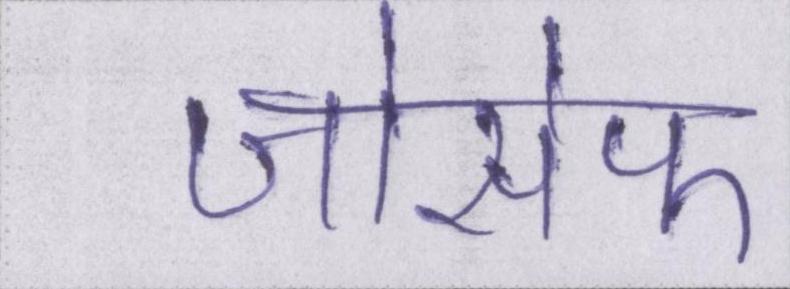 जोसेफ